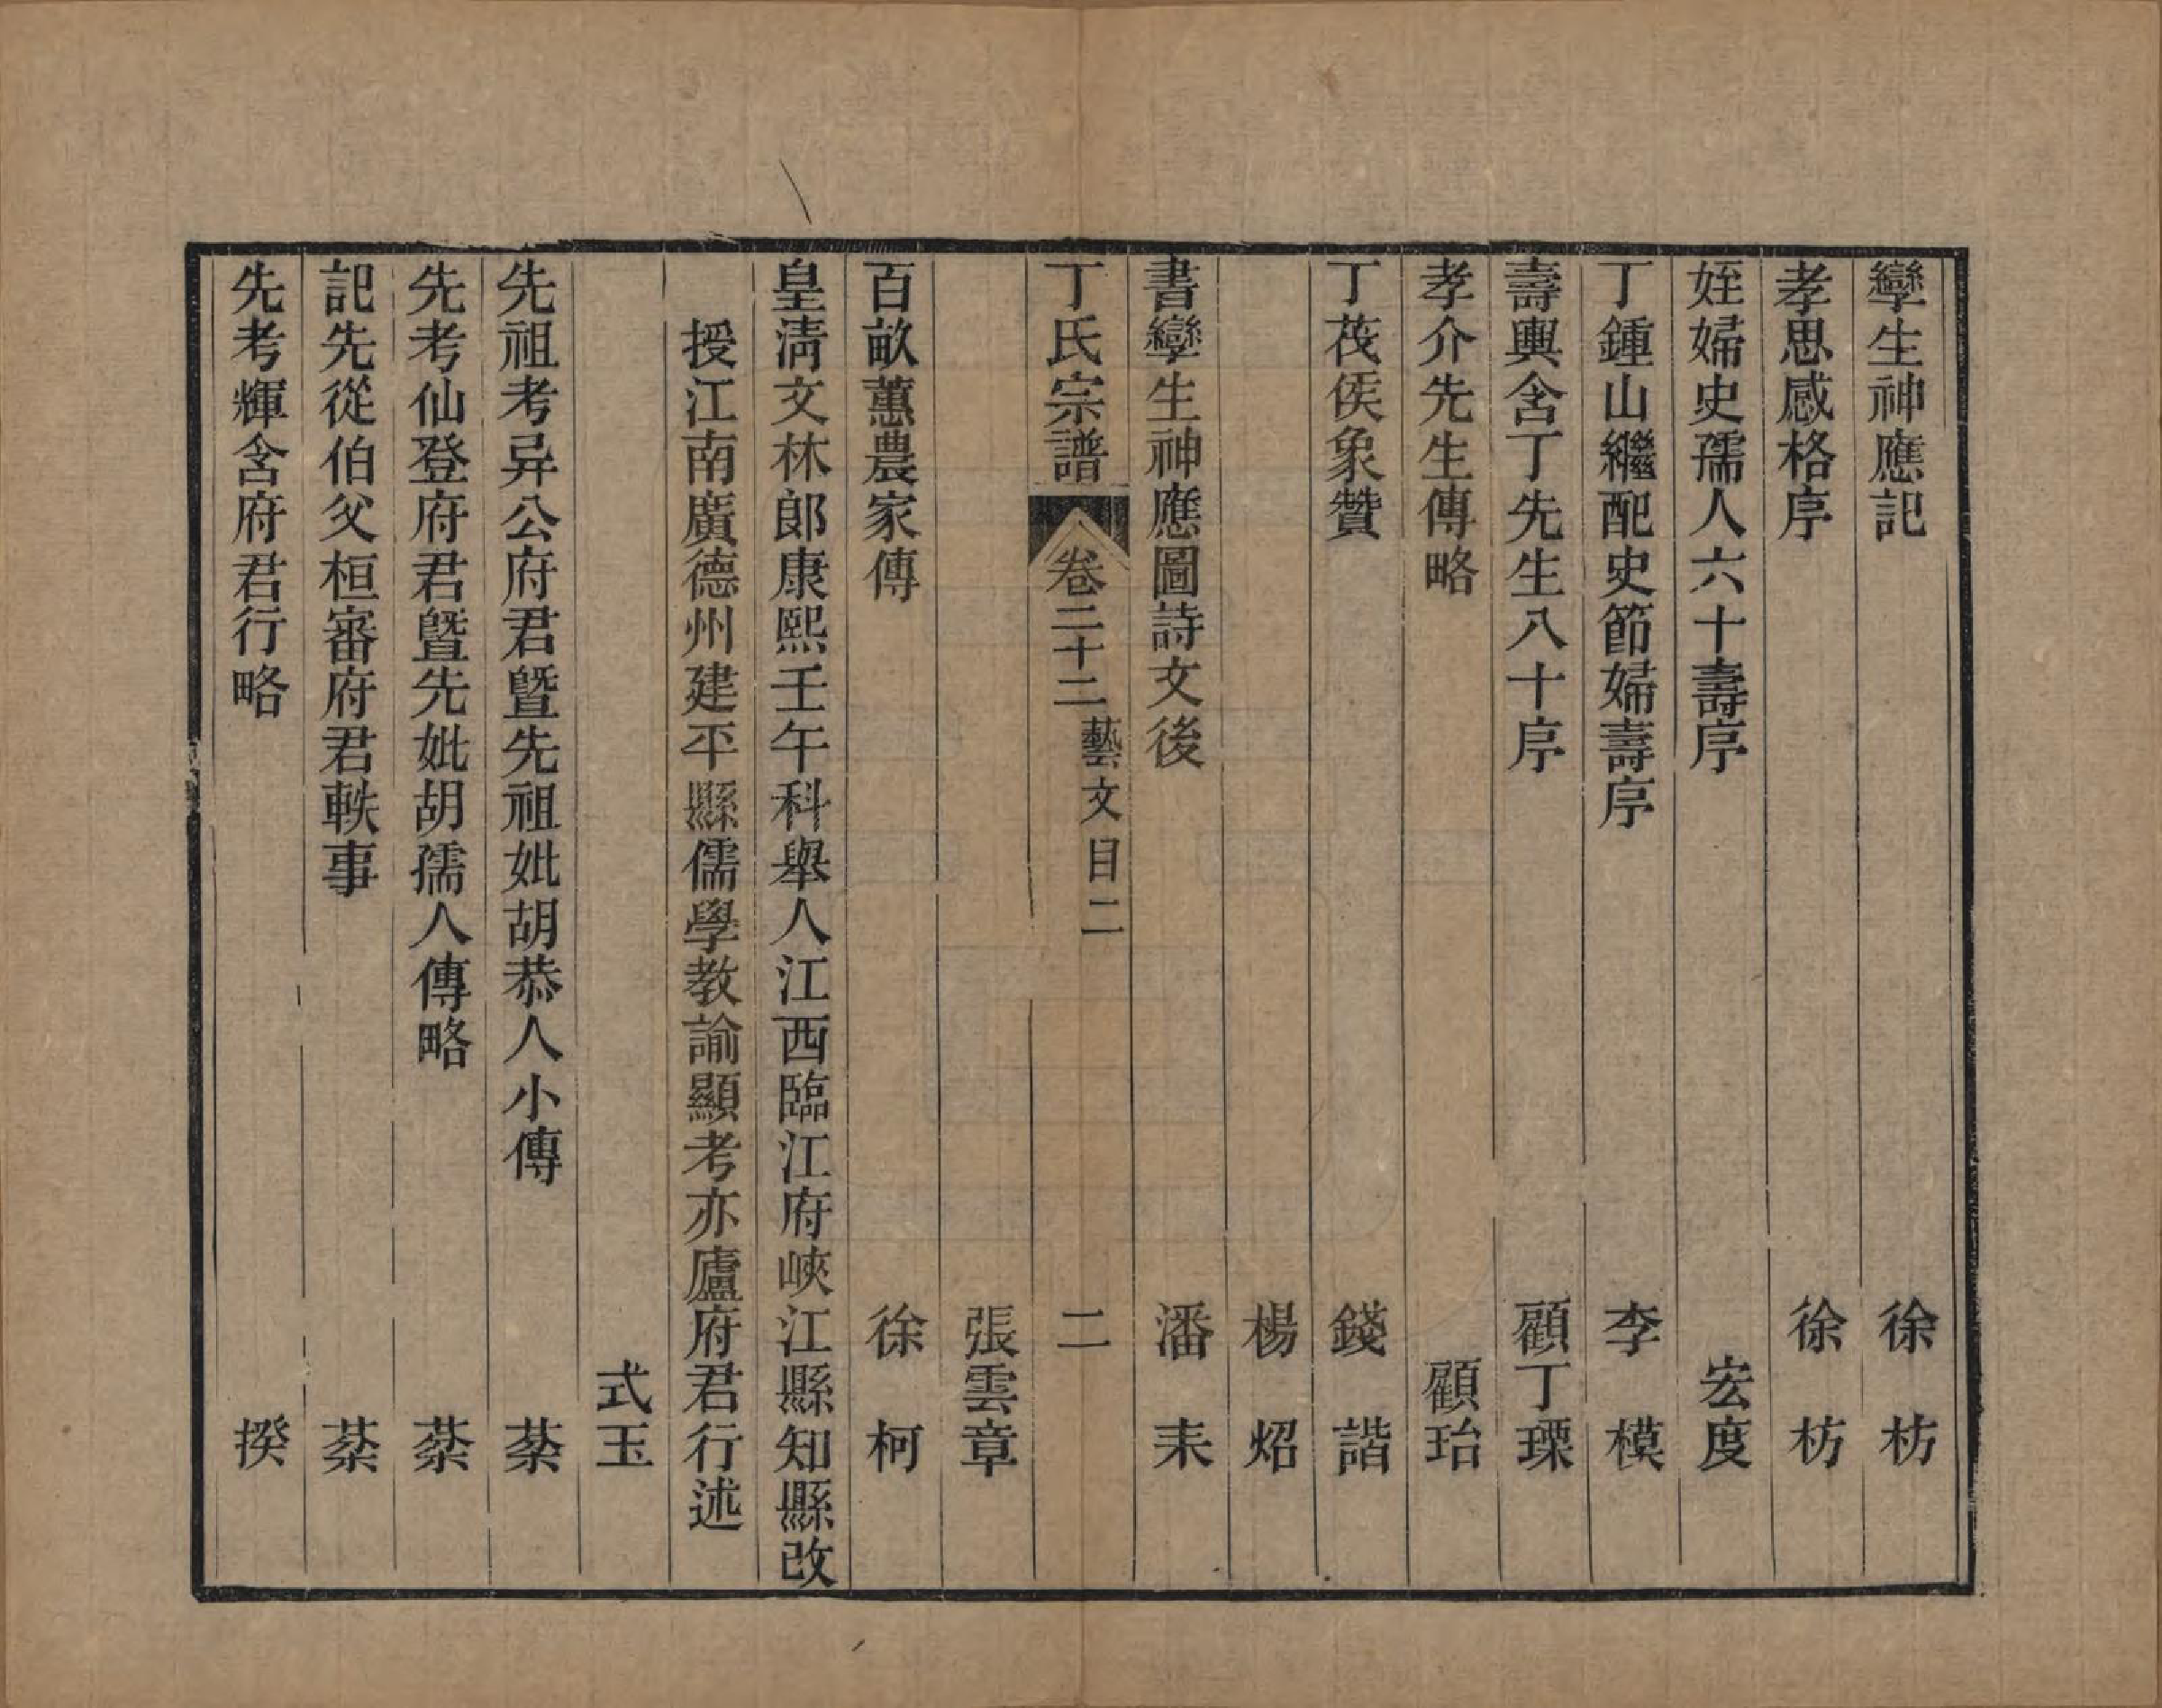 孿生神應記　徐枋
孝思感格序　徐枋
姪婦史孺人六十壽序　宏度
丁鍾山繼配史節婦壽序　李模
壽輿含丁先生八十序　顧丁瑮
孝介先生傳略　顧珆
丁茷侯象贊　錢諧
楊炤
書孿生神應圖詩文後　潘耒
丁氏宗譜　卷二十二　藝文目二　二
張雲章
百畝蕙農家傳　徐柯
皇清文林郎康熙壬午科舉人江西臨江府峽江縣知縣改
授江南廣德州建平縣儒學教諭顯考亦廬府君行述
式玉
先祖考异公府君暨先祖妣胡恭人小傳　蔂
先考仙登府君暨先妣胡孺人傳略　蔂
記先從伯父桓審府君軼事　蔂
先考輝含府君行略　揆